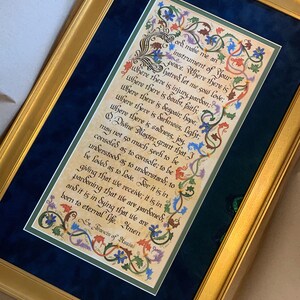 Lord, make me an
instrument of Your
peace. Where there is
hatred let me sow love
where there is injury, pardon
where there is doubt, faith
where there is despair, hope
where there is darkness, light
where there is sadness, joy
O Divine Master, grant that I
may not so much seek to be
consoled as to console; to be
understood as to understand;
to be loved as to love. For it is in
giving that we receive; it is in
pardoning that we are pardoned;
and it is in dying that we are
born to eternal life. Amen
St. Francis of Assisi